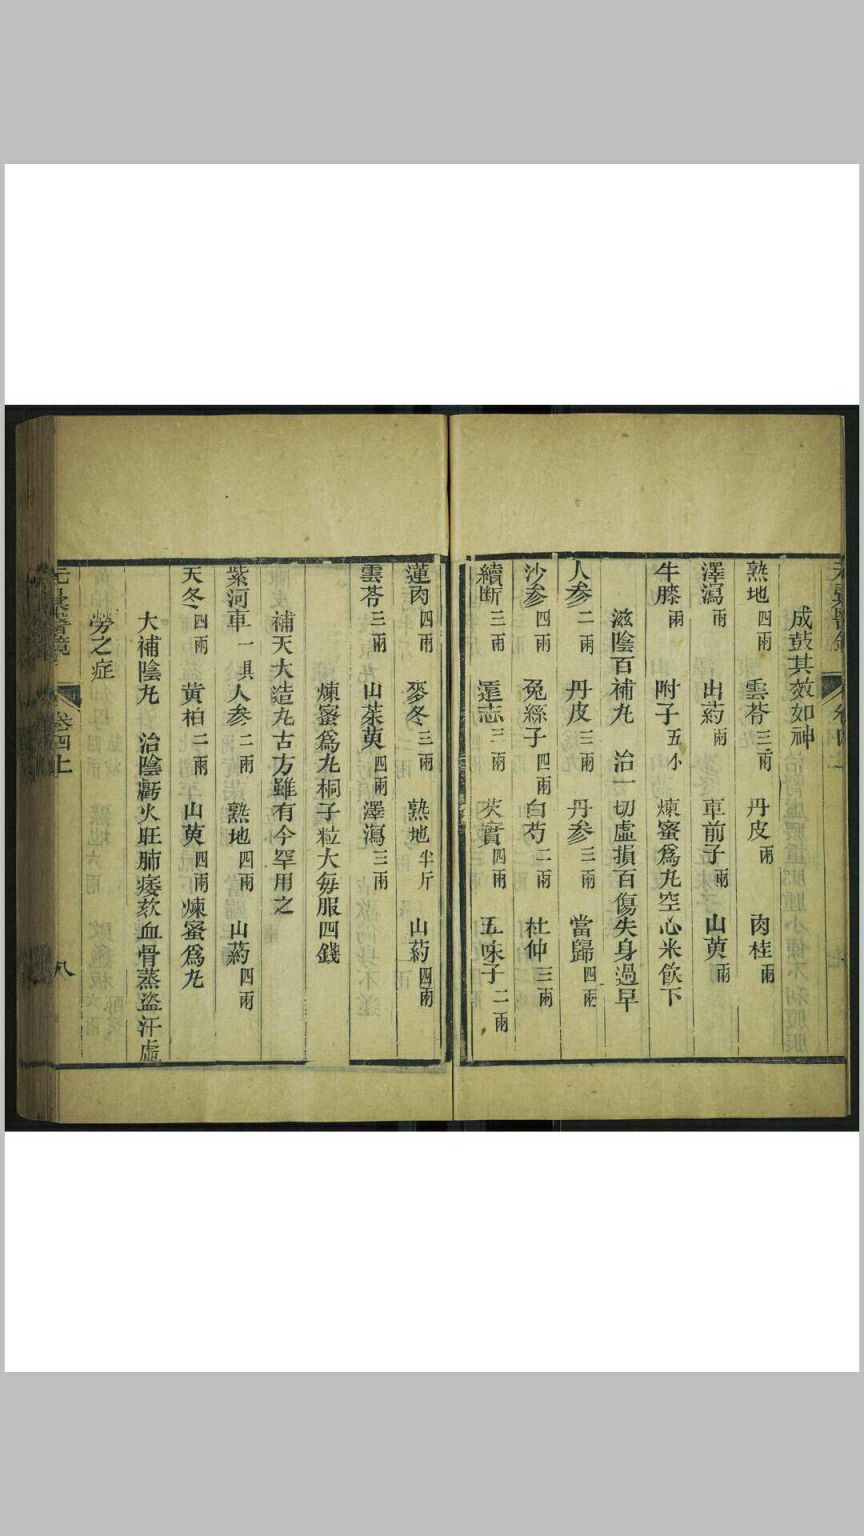 成鼓其效如神
熟地四兩 雲苓三兩 丹皮兩 肉桂兩
澤瀉兩 山葯兩 車前子兩 山萸兩
牛膝兩 附子五小 煉蜜爲丸空心米飲下
滋陰百補丸 治一切虛損百傷失身過早
人参二兩 丹皮三兩 丹参三兩 當歸四兩
沙参四兩 兔絲子四兩 白芍二兩 杜仲三兩
續断三兩 遠志三兩 芡實四兩 五味子二兩
蓮肉四兩 麥冬三兩 熟地半斤 山葯四兩
雲苓三兩 山茱萸四兩 澤瀉三兩
煉蜜爲丸桐子粒大每服四錢
補天大造丸古方雖有今罕用之
紫河車一具 人参二兩 熟地四兩 山葯四兩
天冬四兩 黄柏二兩 山萸四兩 煉蜜爲丸
大補陰丸 治陰虧火旺肺痿欬血骨蒸盜汗虛
勞之症
元彙醫鏡 卷四上 八